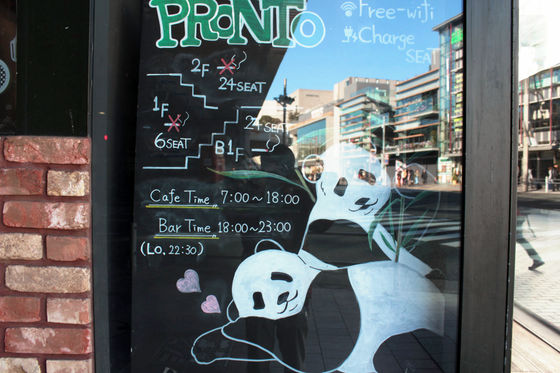 PRONTO
Free-wifi
Charge
SEAT
2F
24 SEAT
1F
6 SEAT
24 SEAT
B1F
Cafe Time 7:00~18:00
Bar Time 18:00~23:00
(Lo. 22:30)